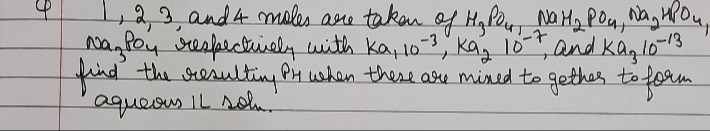 Q 1, 2, 3, and 4 moles are taken of H₃PO₄, NaH₂PO₄, Na₂HPO₄,
Na₃PO₄ respectively with Ka₁ 10⁻³, Ka₂ 10⁻⁷, and Ka₃ 10⁻¹³
find the resulting PH when these are mixed to gether to form
aqueous 1L soln.